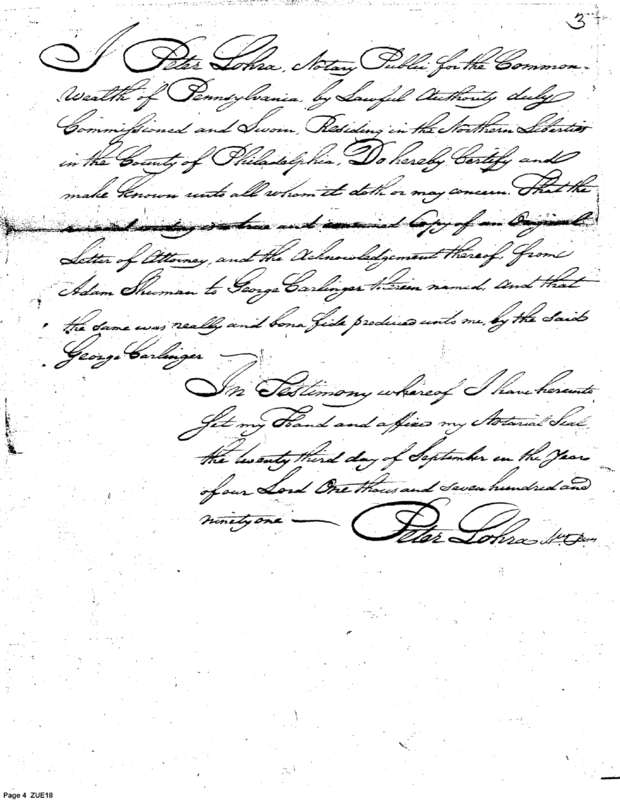 3
I Peter Lohra, Notary Public for the Common-
Wealth of Pennsylvania, by Lawful Authority duly
Commissioned and Sworn, Residing in the Northern Liberties
in the County of Philadelphia, Do hereby Certify and
make known unto all whom it doth or may concern. That the
true and Copy of an Original
Letter of Attorney, and the Acknowledgement thereof, from
Adam Shuman to George Carlinger therein named, and that
the same was really and bona fide produced unto me, by the said
George Carlinger
In Testimony whereof I have hereunto
Set my Hand and affixed my Notarial Seal
the twenty third day of September in the Year
of our Lord One thousand seven hundred and
ninety one —
Peter Lohra
Page 4 ZUE18